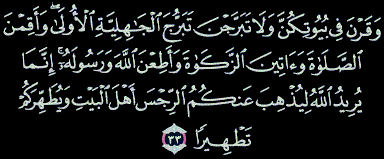 وَقَرْنَ فِى بُيُوتِكُنَّ وَلَا تَبَرَّجْنَ تَبَرُّجَ ٱلْجَـٰهِلِيَّةِ ٱلْأُولَىٰ ۖ وَأَقِمْنَ
ٱلصَّلَوٰةَ وَءَاتِينَ ٱلزَّكَوٰةَ وَأَطِعْنَ ٱللَّهَ وَرَسُولَهُۥٓ ۚ إِنَّمَا
يُرِيدُ ٱللَّهُ لِيُذْهِبَ عَنكُمُ ٱلرِّجْسَ أَهْلَ ٱلْبَيْتِ وَيُطَهِّرَكُمْ
تَطْهِيرًا ٣٣